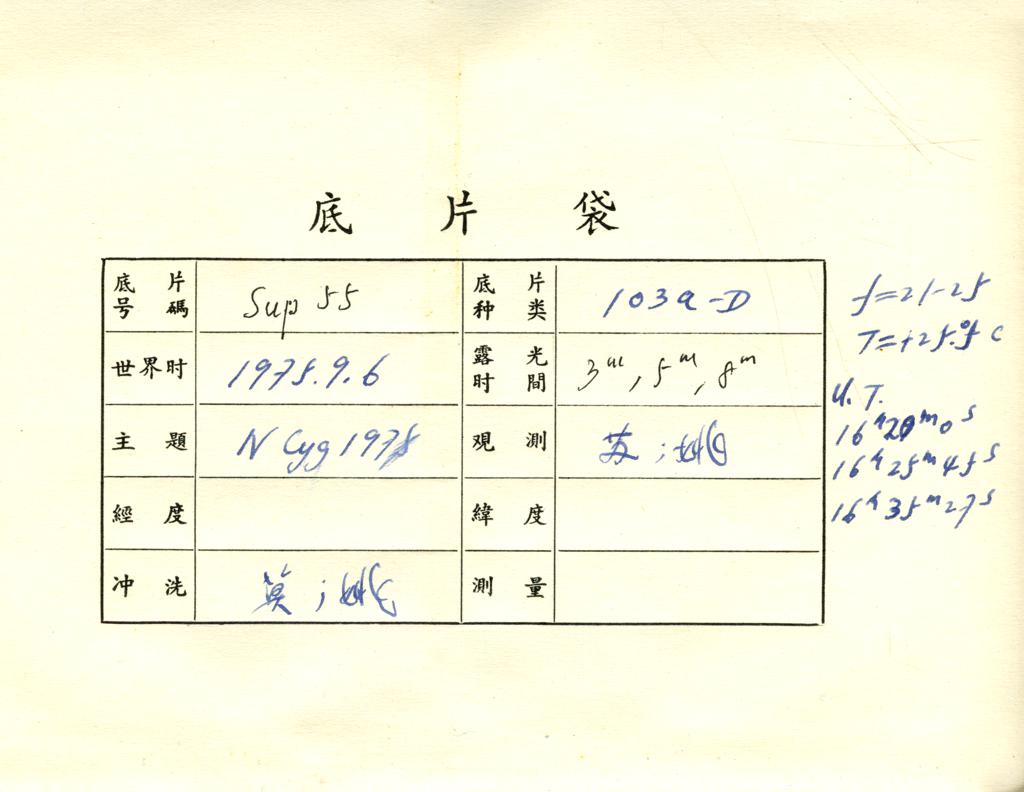 底片袋
底片号碼 Sup 55 底片种类 103a-D
世界时 1975.9.6 露光时間 3m, 5m, 8m
主題 N Cyg 1975 观測 苏；姚
經度 緯度
冲洗 莫；姚 測量
f=21-25
T=+25.°5 C
U.T.
16h20m0s
16h25m45s
16h35m27s